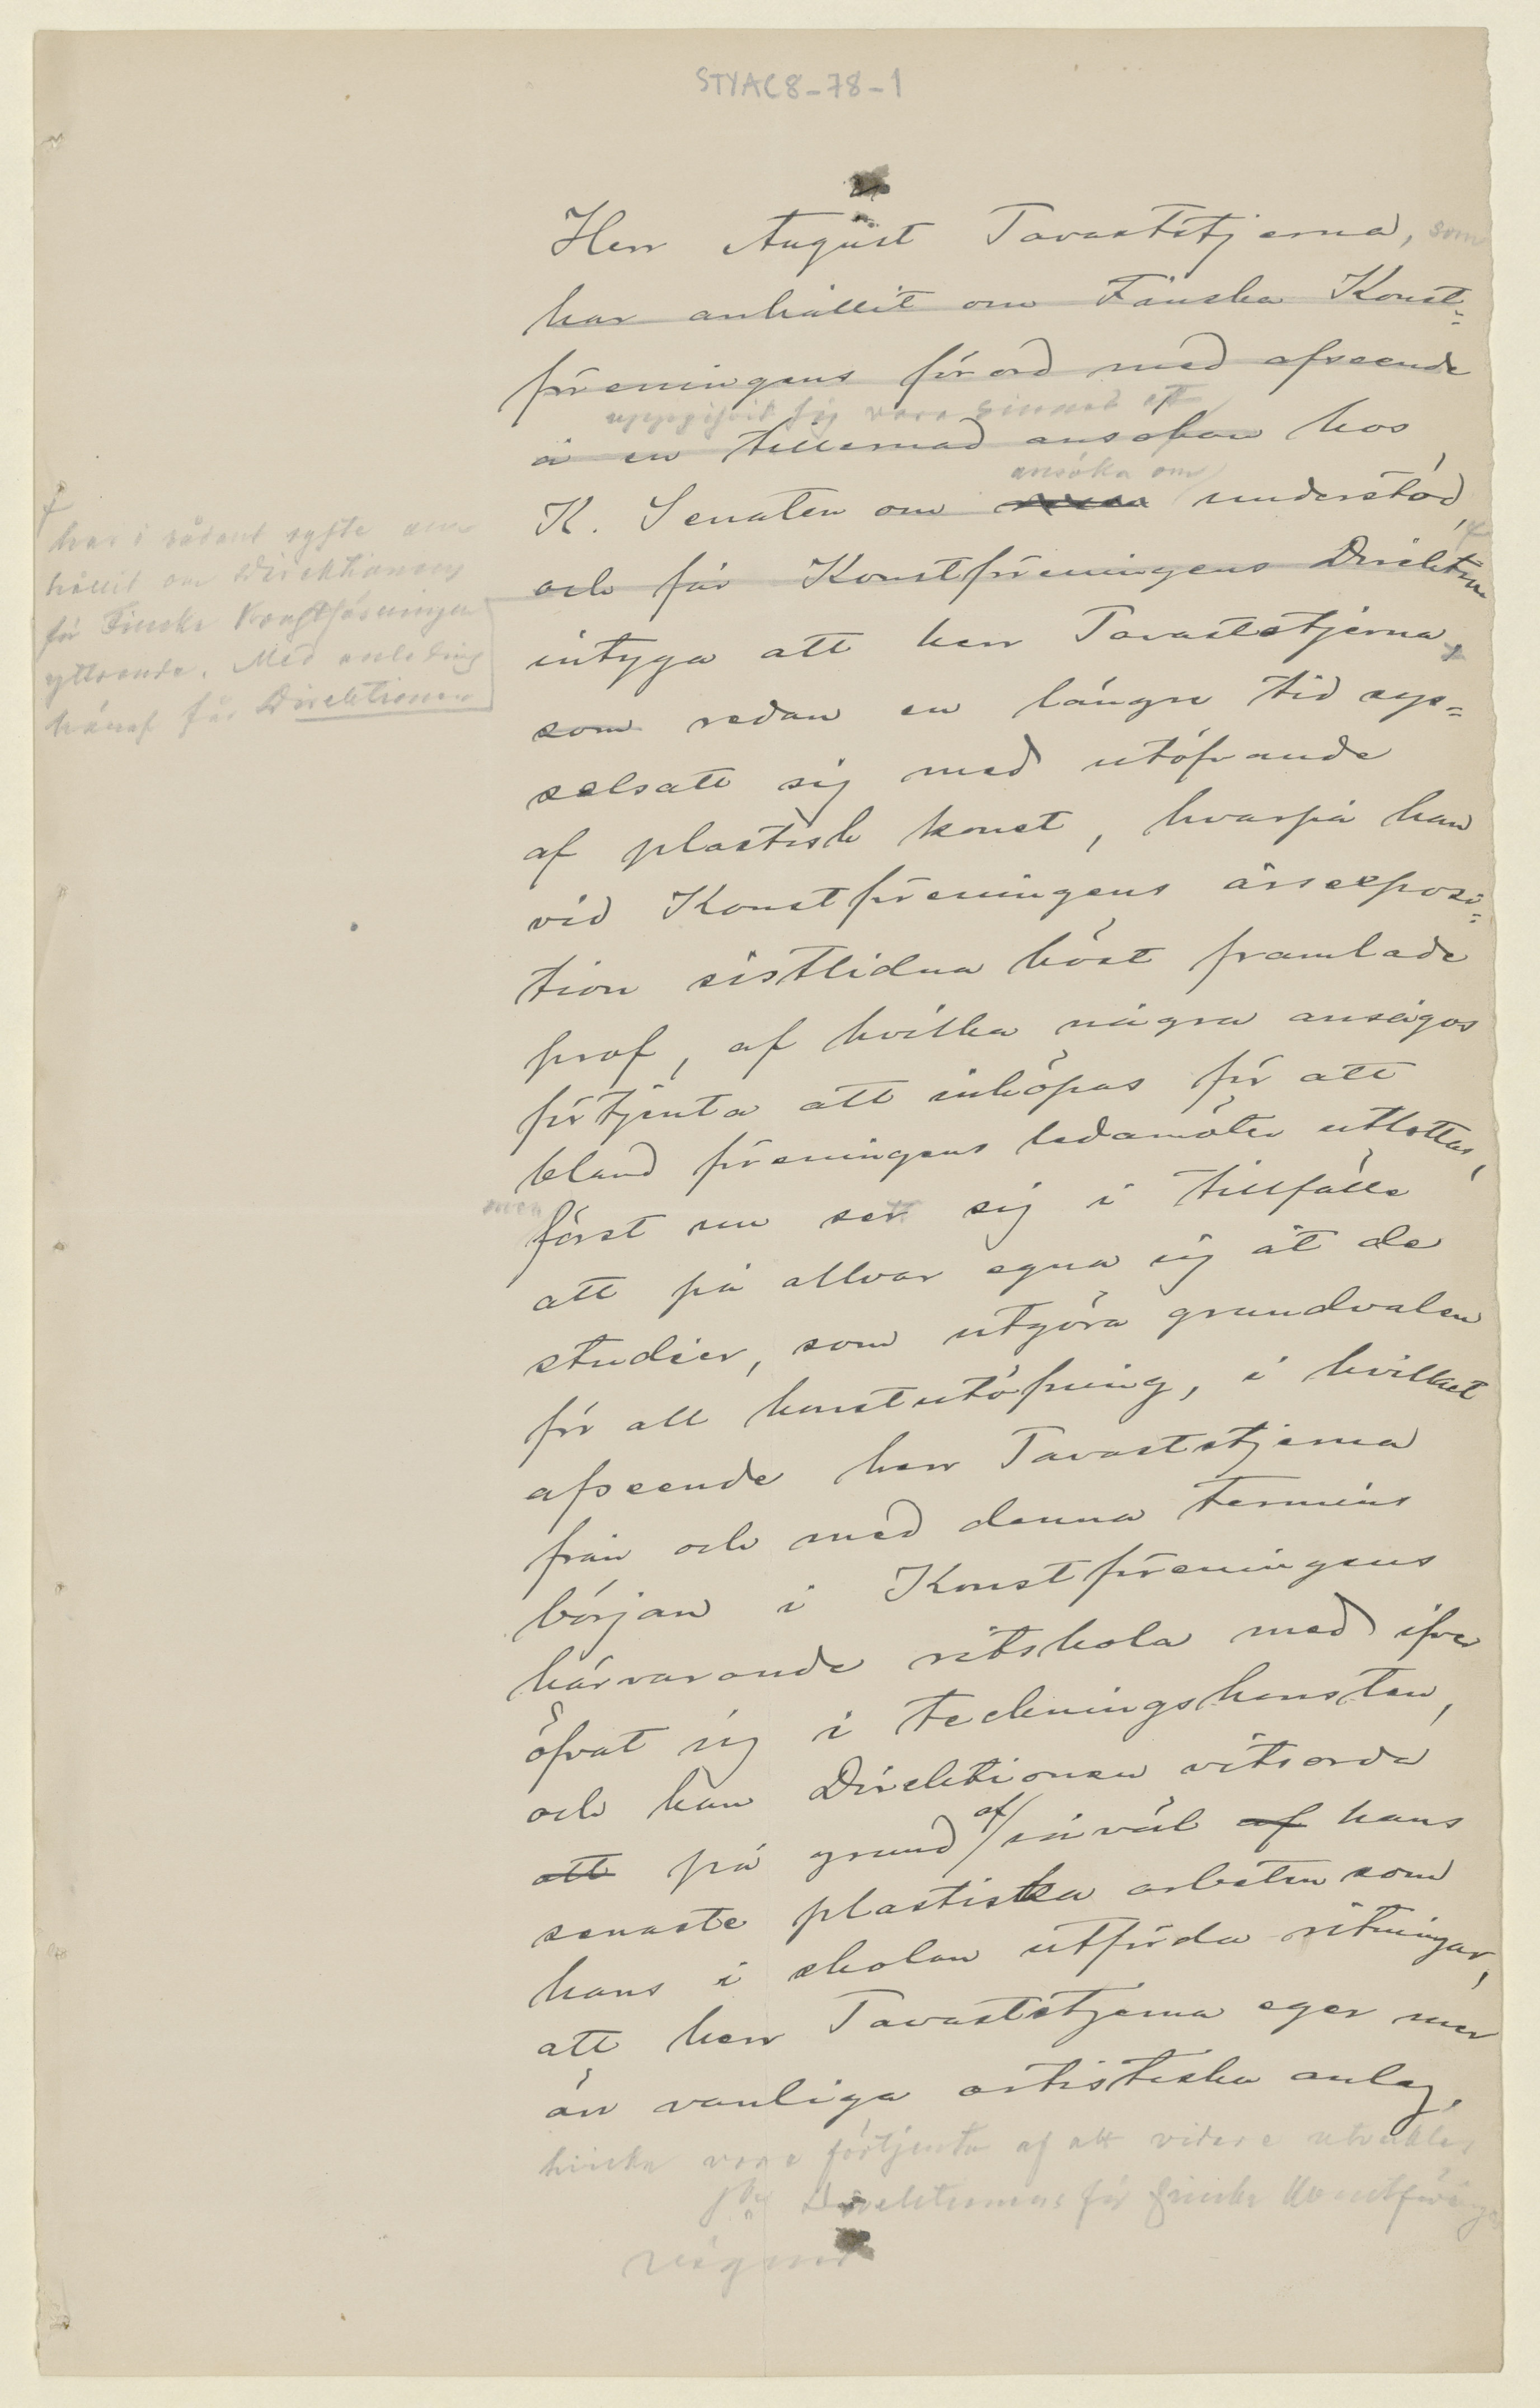 STYAC8-78-1
Herr August Tavaststjerna, som
har anhållit om Finska Konst=
föreningens förord med afseende
uppgifvit sig vara sinnad att
å en tillernad ansökan hos
ansöka om
K. Senaten om understöd,
och får Konstföreningens Direktion
har i sådant syfte an-
hållit om Direktionens
för Finska Konstföreningen
yttrande. Med anledning
häraf får Direktionen
intyga att herr Tavaststjerna,
som redan en längre tid sys=
selsatt sig med utöfvande
af plastisk konst, hvarpå han
vid Konstföreningens årsexposi=
tion sistlidna höst framlade
prof, af hvilka några ansågos
förtjenta att inköpas för att
bland föreningens ledamöter utlottas,
men
först nu sett sig i tillfälle
att på allvar egna sig åt de
studier, som utgöra grundvalen
för all konstutöfning, i hvilket
afseende herr Tavaststjerna
från och med denna termins
början i Konstföreningens
härvarande ritskola med ifver
öfvat sig i teckningskonsten,
och kan Direktionen vitsorda
att på grund af såväl af hans
senaste plastiska arbeten som
hans i skolan utförda ritningar,
att herr Tavaststjerna eger mer
än vanliga artistiska anlag,
hvilka vore förtjenta af att vidare utvecklas
Direktionens för Finska Konstförening
vägnar